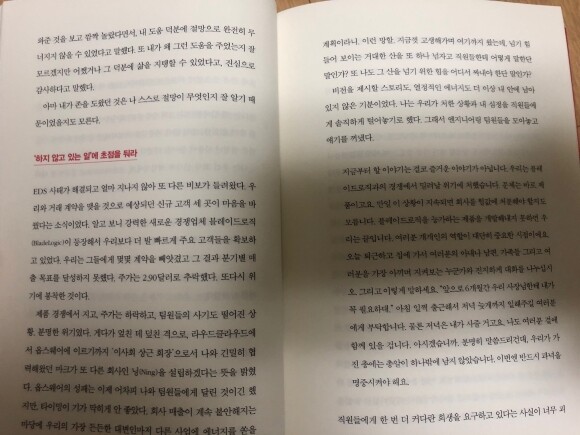 과준 것을 보고 깜짝 놀랐다면서, 내 도움 덕분에 절망으로 완전히 무
너지지 않을 수 있었다고 말했다. 또 내가 왜 그런 도움을 주었는지 잘
모르겠지만 어쨌거나 그 덕분에 삶을 지탱할 수 있었다고, 진심으로
감사하다고 말했다.
아마 내가 존을 도왔던 것은 나 스스로 절망이 무엇인지 잘 알기 때
문이었을지도 모른다.
'하지 않고 있는 일'에 초점을 둬라
EDS 사태가 해결되고 얼마 지나지 않아 또 다른 비보가 들려왔다. 우
리와 거래 계약을 맺을 것으로 예상되던 신규 고객 세 곳이 마음을 바
꿨다는 소식이었다. 알고 보니 강력한 새로운 경쟁업체 블레이드로직
(BladeLogic)이 등장해서 우리보다 더 발 빠르게 주요 고객들을 확보하
고 있었다. 우리는 그들에게 몇몇 계약을 빼앗겼고 그 결과 분기별 매
출 목표를 달성하지 못했다. 주가는 2.90달러로 추락했다. 또다시 위
기에 봉착한 것이다.
제품 경쟁에서 지고, 주가는 하락하고, 팀원들의 사기도 떨어진 상
황, 분명한 위기였다. 게다가 엎친 데 덮친 격으로, 라우드클라우드에
서 옵스웨어에 이르기까지 '이사회 상근 회장'으로서 나와 긴밀히 협
력해왔던 마크가 또 다른 회사인 닝(Ning)을 설립하겠다는 뜻을 밝혔
다. 옵스웨어의 성패는 이제 어차피 나와 팀원들에게 달린 것이긴 했
지만, 타이밍이 기가 막히게 안 좋았다. 회사 매출이 계속 불안해지는
마당에 우리의 가장 든든한 대변인마저 다른 사업에 에너지를 쏟을
계획이라니. 이런 망할. 지금껏 고생해가며 여기까지 왔는데, 넘기 힘
들어 보이는 거대한 산을 또 하나 넘자고 직원들한테 어떻게 말한단
말인가? 또 나도 그 산을 넘기 위한 힘을 어디서 짜내야 한단 말인가?
비전을 제시할 스토리도, 열정적인 에너지도 더 이상 내 안에 남아
있지 않은 기분이었다. 나는 우리가 처한 상황과 내 심정을 직원들에
게 솔직하게 털어놓기로 했다. 그래서 엔지니어링 팀원들을 모아놓고
얘기를 꺼냈다.
지금부터 할 이야기는 결코 즐거운 이야기가 아닙니다. 우리는 블레
이드로직과의 경쟁에서 밀려날 위기에 처했습니다. 문제는 바로 제
품이고요. 만일 이 상황이 지속되면 회사를 헐값에 처분해야 할지도
모릅니다. 블레이드로직을 능가하는 제품을 개발해내지 못하면 우
리는 끝입니다. 여러분 개개인의 역할이 대단히 중요한 시점이에요.
오늘 퇴근하고 집에 가면 여러분의 아내나 남편, 가족들, 그리고 여
러분을 가장 아끼며 지켜보는 누군가와 진지하게 대화를 나누십시
오. 그리고 이렇게 말하세요. "앞으로 6개월간 우리 사장님한테 내가
꼭 필요하대." 아침 일찍 출근해서 저녁 늦게까지 일해주길 여러분
에게 부탁합니다. 물론 저녁은 내가 사줄 거고요. 나도 여러분 곁에
함께 있을 겁니다. 아시겠습니까. 분명히 말씀드리건대, 우리가 가
진 총에는 총알이 하나밖에 남지 않았습니다. 이번엔 반드시 과녁을
명중시켜야 해요.
직원들에게 한 번 더 커다란 희생을 요구하고 있다는 사실이 너무 괴